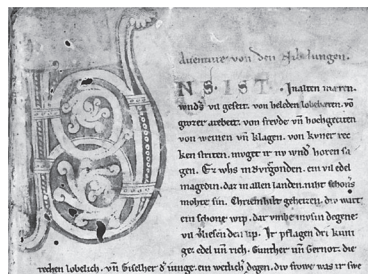 Auenture von den Nibelungen.
UNS. IST. In alten mæren.
wnds vil geseit. von heleden lobebæren. vō
grozer arebeit. von frevde vn̄ hochgeciten
von weinen vn̄ klagen. von kvner rec
ken striten. mvget ir nv wnd horen sa
gen. Ez whs in Bvrgonden. ein vil edel
magedin. daz in allen landen. niht schoners
mohte sin. Chriemhilt geheizen. div wart
ein schone wip. dar vmbe mvsin degene.
vil Uliesen den lip. Ir pflagen dri kuni
ge. edel vn̄ rich. Gunther vn̄ Gernot. die
rechen lobelich. vn̄ Giselher d iunge. ein wetlich degen. div frowe was ir swe